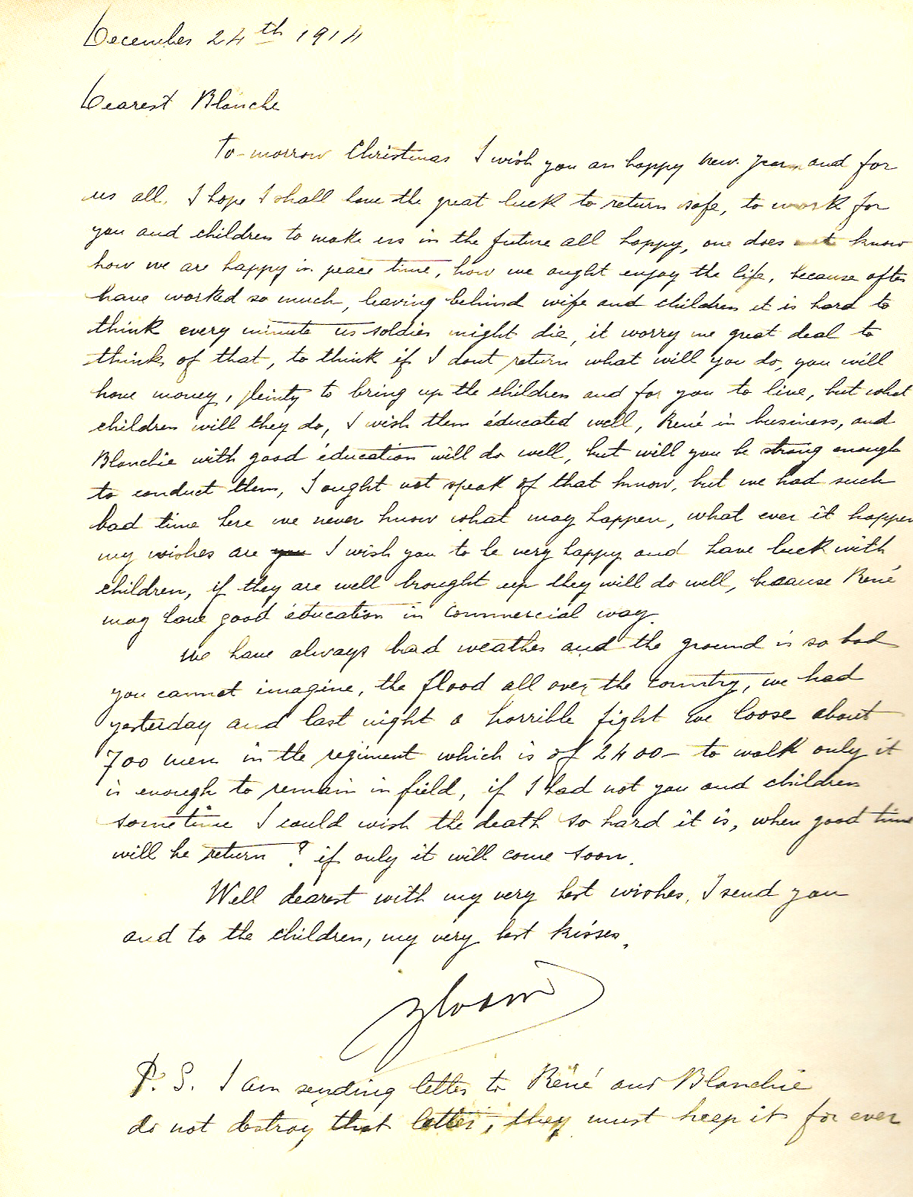 December 24th 1914
Dearest Blanche
To-morrow Christmas I wish you an happy new year and for
us all. I hope I shall have the great luck to return safe, to work for
you and children to make us in the future all happy, one does not know
how we are happy in peace time, how we ought enjoy the life, because after
have worked so much, leaving behind wife and children it is hard to
think every minute us soldies might die, it worry me great deal to
think of that, to think if I dont return what will you do, you will
have money, plenty to bring up the children and for you to live, but what
children will they do, I wish them éducated well, René in business, and
Blanchie with good éducation will do well, but will you be strong enough
to conduct them, I ought not speak of that know, but we had such
bad time here we never know what may happen, what ever it happen
my wishes are I wish you to be very happy and have luck with
children, if they are well brought up they will do well, because René
may have good éducation in commercial way.
We have always bad weather and the ground is so bad
you cannot imagine, the flood all over the country, we had
yesterday and last night a horrible fight we loose about
700 men in the regiment which is of 2400 - to walk only it
is enough to remain in field, if I had not you and children
sometime I could wish the death so hard it is, when good time
will be return ? if only it will come soon.
Well dearest with my very best wishes, I send you
and to the children, my very best kisses.
P.S. I am sending letter to René and Blanchie
do not destroy that letter, they must keep it for ever